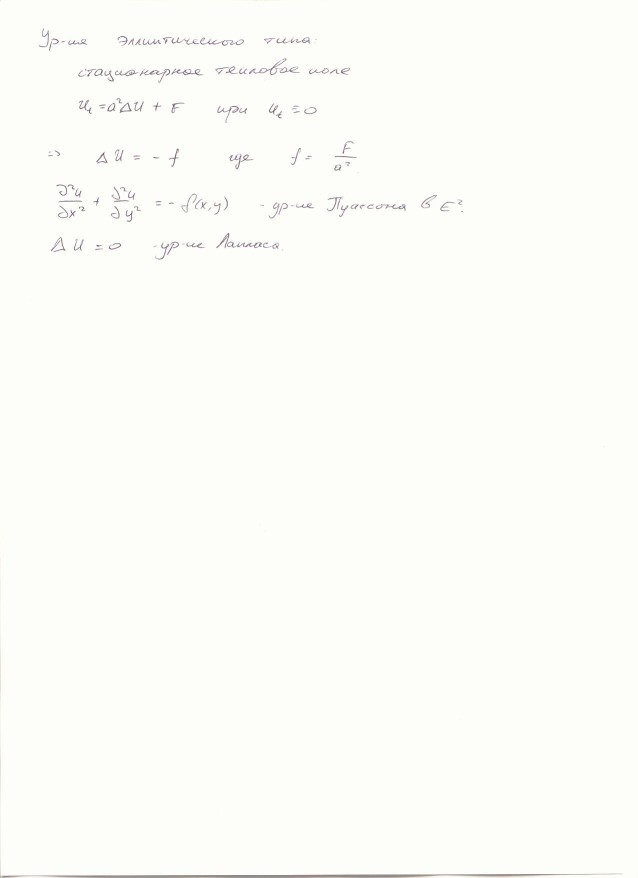 Ур-ия эллиптического типа.
стационарное тепловое поле
u_t = a²Δu + F при u_t ≡ 0
=> Δu = - f где f = F/a²
∂²u/∂x² + ∂²u/∂y² = - f(x,y) - ур-ие Пуассона в E².
Δu = 0 - ур-ие Лапласа.